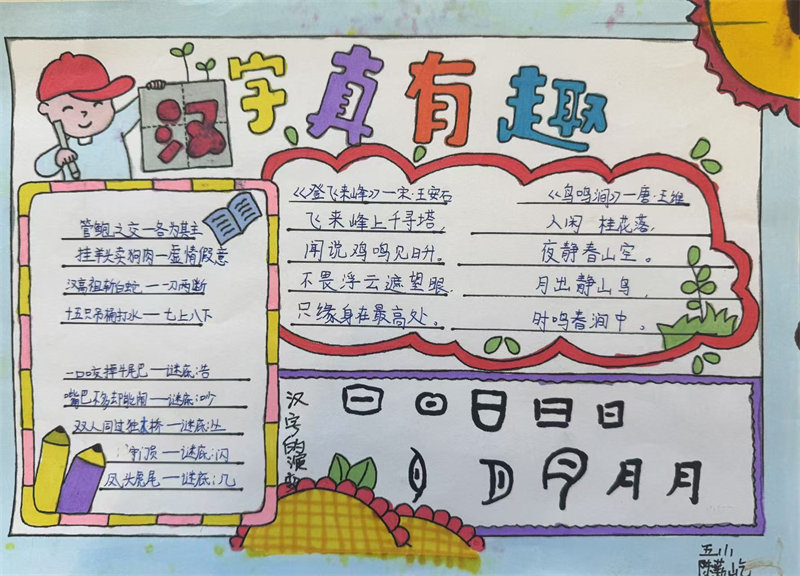 汉字真有趣
管鲍之交一各为其主
挂羊头卖狗肉一虚情假意
汉高祖斩白蛇一一刀两断
十五只吊桶打水一七上八下
一口咬掉牛尾巴一谜底:告
嘴巴不多却能闹一谜底:吵
双人同过独木桥一谜底:丛
一谜底:闪
凤头虎尾一谜底:几
《登飞来峰》一宋·王安石
飞来峰上千寻塔,
闻说鸡鸣见日升。
不畏浮云遮望眼,
只缘身在最高处。
《鸟鸣涧》一唐·王维
人闲 桂花落,
夜静春山空。
月出静山鸟,
时鸣春涧中。
汉字的演变
日
月 月
五小